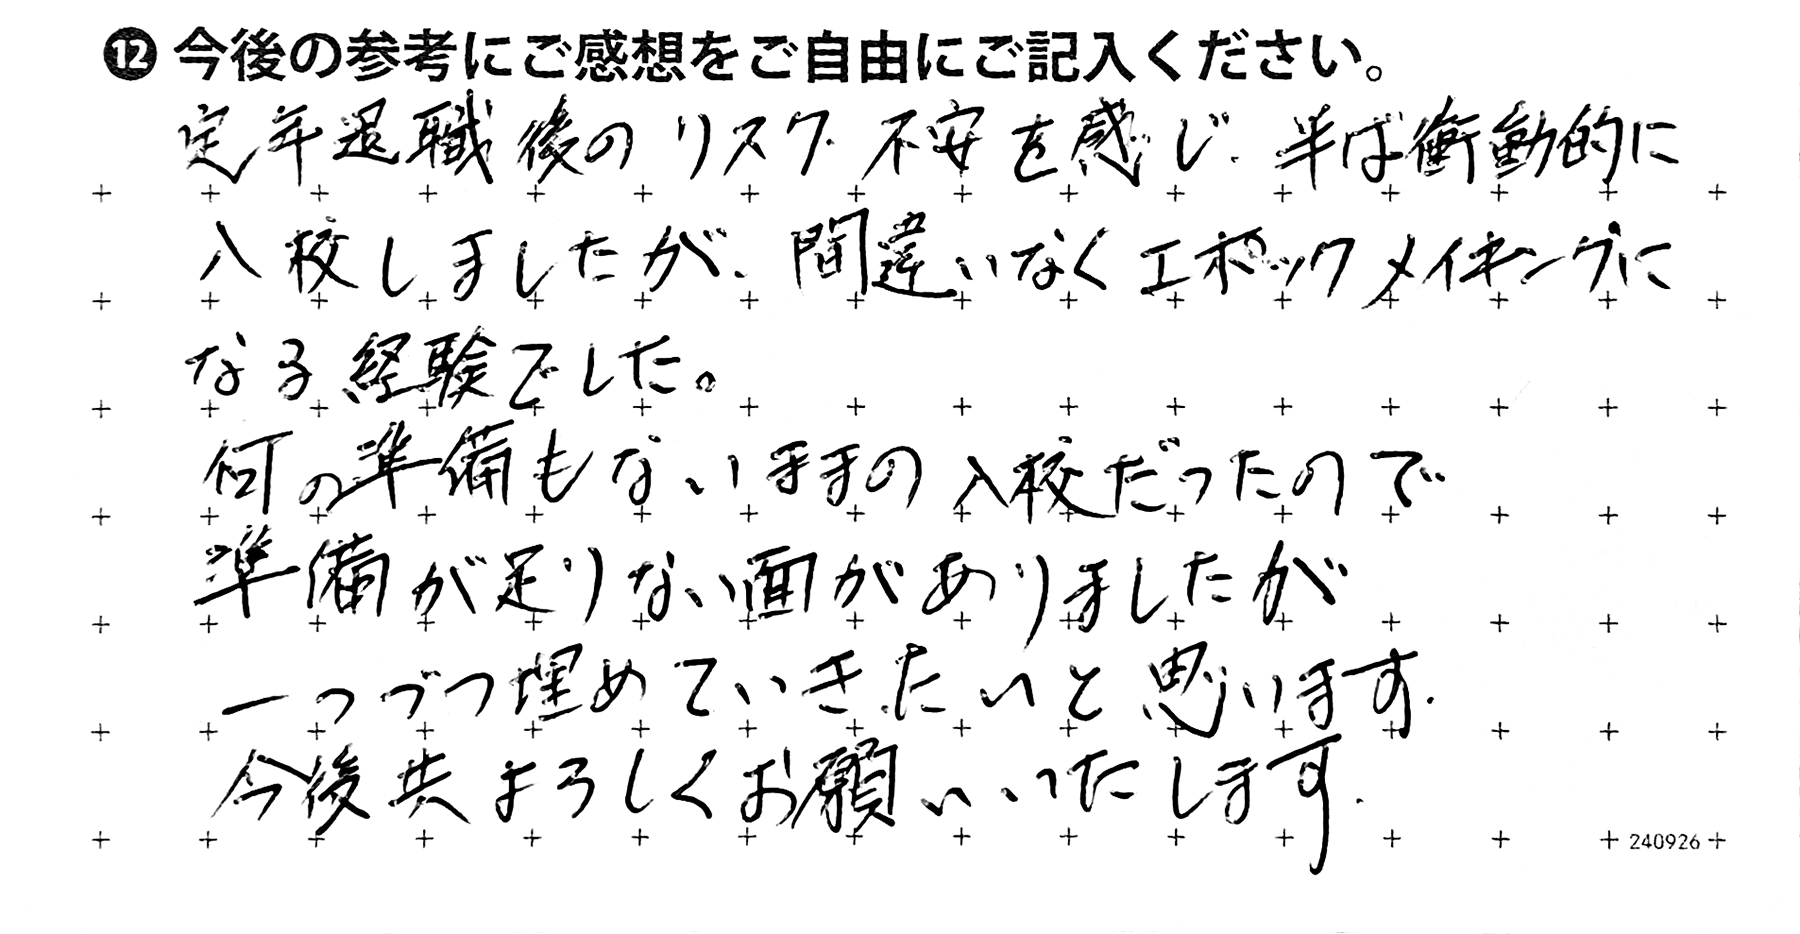 ⓬ 今後の参考にご感想をご自由にご記入ください。
定年退職後のリスク不安を感じ、半ば衝動的に
入校しましたが、間違いなくエポックメイキングに
なる経験でした。
何の準備もないままの入校だったので
準備が足りない面がありましたが
一つづつ埋めていきたいと思います.
今後共よろしくお願いいたします.
240926